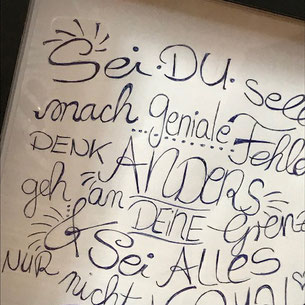 Sei • DU • sel
mach geniale Fehle
DENK ANDERS
geh an DEINE Gren
& Sei ALLES
NUR nicht